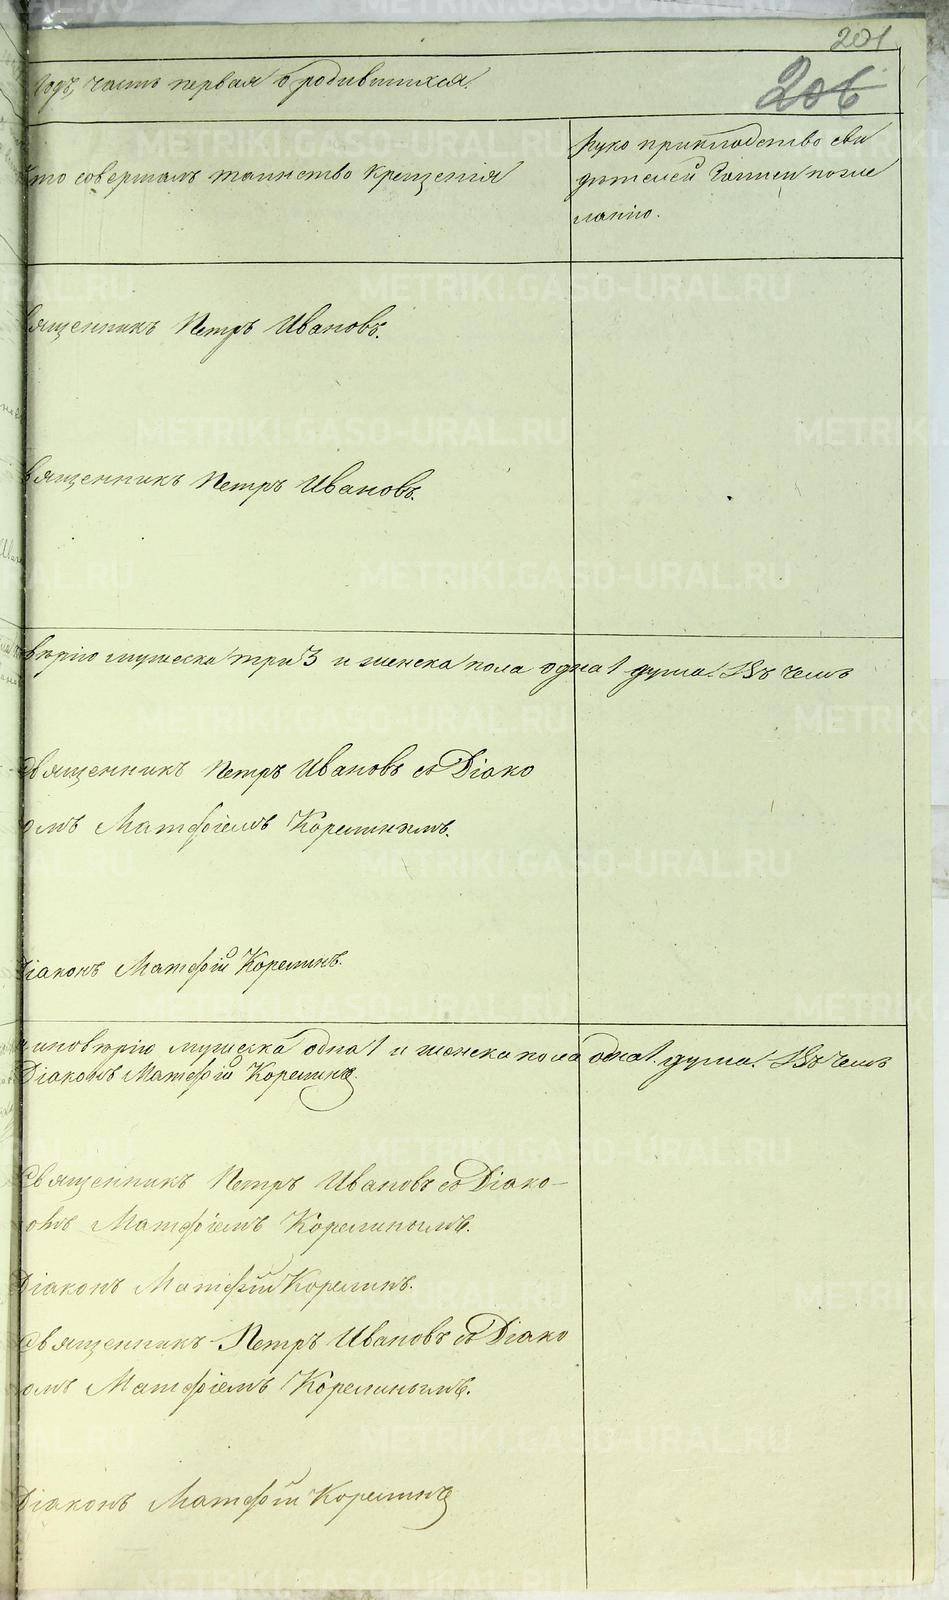 201
206
годъ, часть первая о родившихся.
Кто совершалъ таинство крещенія
Руко прикладство сви
дѣтелей записи по же
ланію.
вященникъ Петръ Ивановъ.
вященникъ Петръ Ивановъ.
вѣрію мужеска три 3 и женска пола одна 1 душа. Въ чемъ
Священникъ Петръ Ивановъ съ Діако
омъ Матфіемъ Корелинымъ.
Діаконъ Матфій Корелинъ.
иновѣрію мужеска одна 1 и женска пола одна 1. душа. Въ чемъ
Діаконъ Матфій Корелинъ.
Священникъ Петръ Ивановъ съ Діако-
омъ Матфіемъ Корелинымъ.
Діаконъ Матфій Корелинъ.
Священникъ Петръ Ивановъ съ Діако
омъ Матфіемъ Корелинымъ.
Діаконъ Матфій Корелинъ